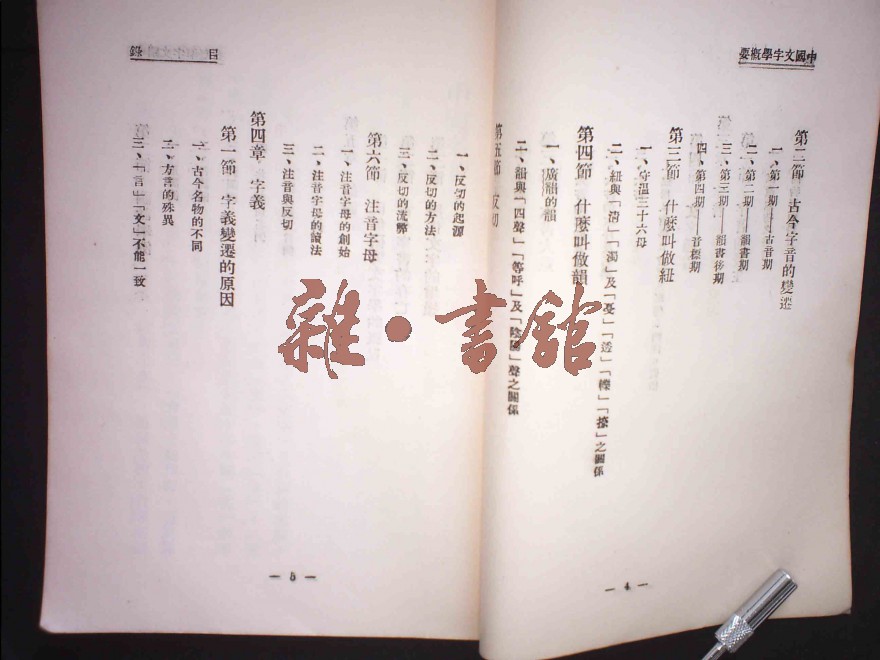 中國文字學概要
第二節 古今字音的變遷
一、第一期——古音期
二、第二期——韻書期
三、第三期——韻書後期
四、第四期——音標期
第三節 什麼叫做紐
一、守溫三十六母
二、紐與「清」「濁」及「戛」「透」「轢」「捺」之關係
第四節 什麼叫做韻
一、廣韻的韻
二、韻與「四聲」「等呼」及「陰陽」聲之關係
— 4 —
目錄
第五節 反切
一、反切的起源
二、反切的方法
三、反切的流弊
第六節 注音字母
一、注音字母的創始
二、注音字母的讀法
三、注音與反切
第四章 字義
第一節 字義變遷的原因
一、古今名物的不同
二、方言的殊異
三、「言」「文」不能一致
— 5 —
雜•書館